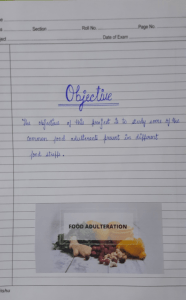 Section
Roll No.
Page No
Date of Exam
Objective
The objective of this project is to study some of the
common food adulterants present in different
food stuffs.
FOOD ADULTERATION